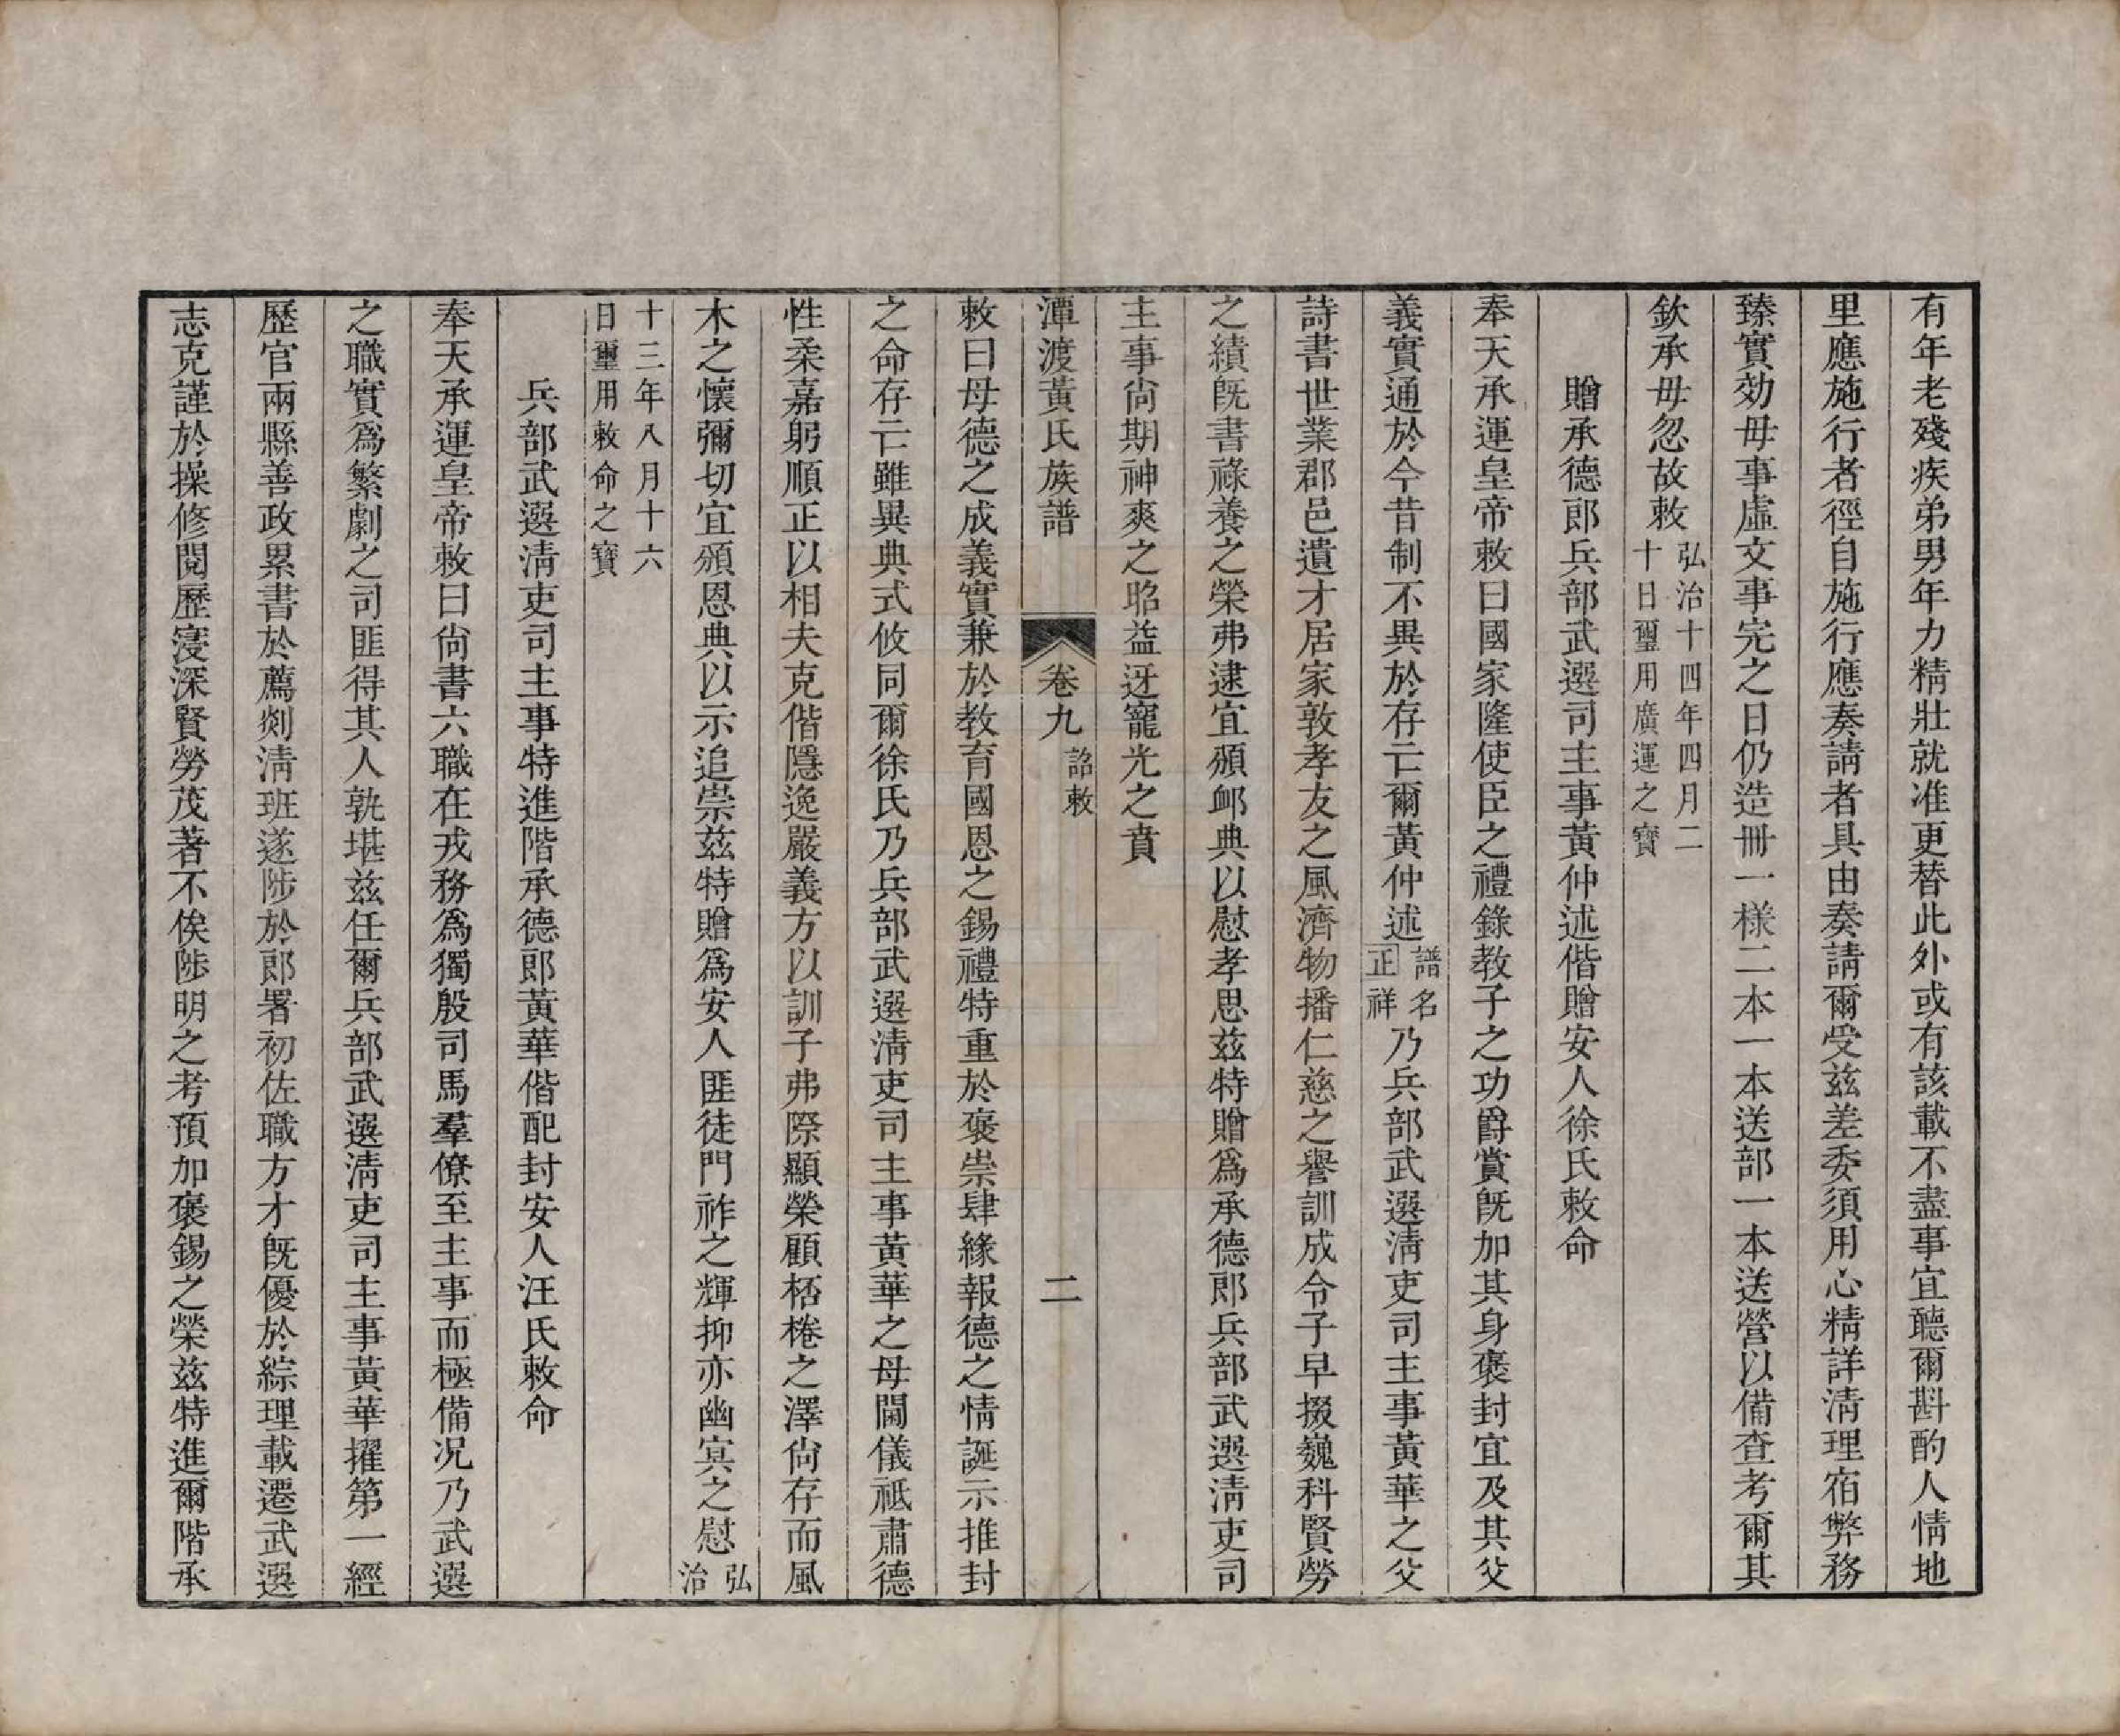 有年老殘疾弟男年力精壯就准更替此外或有該載不盡事宜聽爾斟酌人情地
里應施行者徑自施行應奏請者具由奏請爾受茲差委須用心精詳清理宿弊務
臻實効毋事虛文事完之日仍造冊一樣二本一本送部一本送營以備查考爾其
欽承毋忽故敕弘治十四年四月二十日璽用廣運之寶
贈承德郎兵部武選司主事黃仲述偕贈安人徐氏敕命
奉天承運皇帝敕曰國家隆使臣之禮錄教子之功爵賞旣加其身褒封宜及其父
義實通於今昔制不異於存亡爾黃仲述譜名正祥乃兵部武選淸吏司主事黃華之父
詩書世業郡邑遺才居家敦孝友之風濟物播仁慈之譽訓成令子早掇巍科賢勞
之績旣書祿養之榮弗逮宜頒卹典以慰孝思茲特贈爲承德郎兵部武選淸吏司
主事尙期神爽之昭益迓寵光之賁
潭渡黃氏族譜 卷九 詔敕 二
敕曰母德之成義實兼於教育國恩之錫禮特重於褒崇肆緣報德之情誕示推封
之命存亡雖異典式攸同爾徐氏乃兵部武選淸吏司主事黃華之母閫儀祗肅德
性柔嘉躬順正以相夫克偕隱逸嚴義方以訓子弗際顯榮顧桮棬之澤尙存而風
木之懷彌切宜頒恩典以示追崇茲特贈爲安人匪徒門祚之輝抑亦幽冥之慰弘治
十三年八月十六日璽用敕命之寶
兵部武選淸吏司主事特進階承德郎黃華偕配封安人汪氏敕命
奉天承運皇帝敕曰尙書六職在戎務爲獨殷司馬羣僚至主事而極備况乃武選
之職實爲繁劇之司匪得其人孰堪茲任爾兵部武選淸吏司主事黃華擢第一經
歷官兩縣善政累書於薦剡淸班遂陟於郎署初佐職方才旣優於綜理載遷武選
志克謹於操修閱歷寖深賢勞茂著不俟陟明之考預加褒錫之榮茲特進爾階承